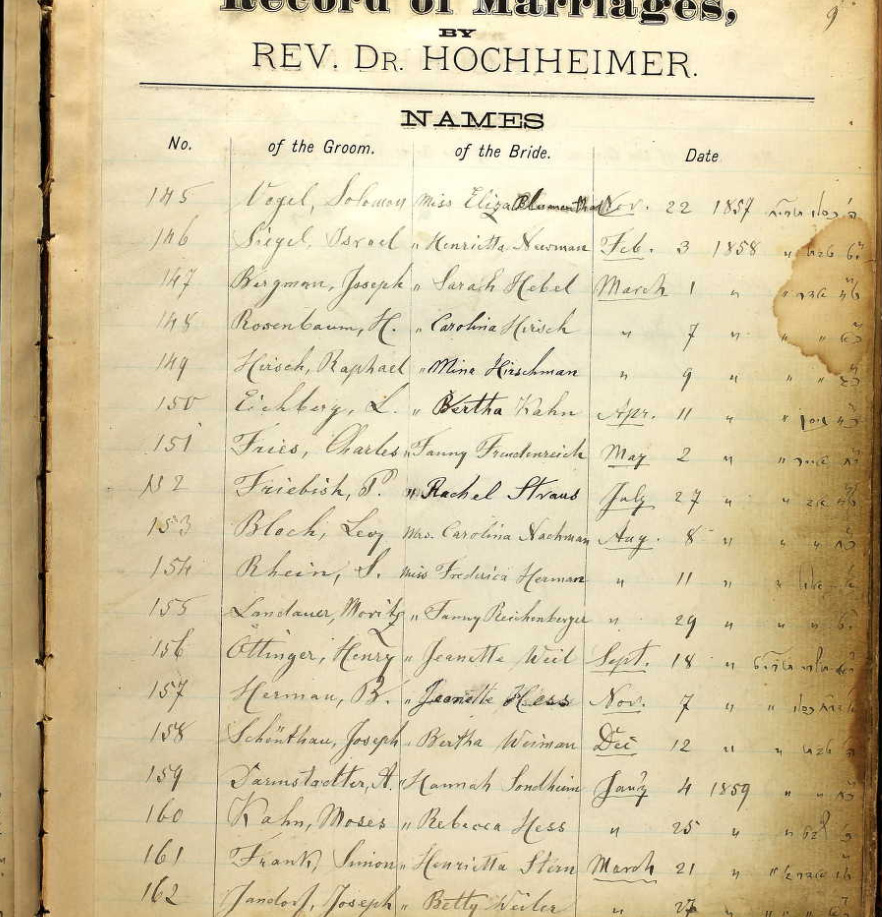 Record of Marriages,
9
BY
REV. DR. HOCHHEIMER.
NAMES
No. of the Groom. of the Bride. Date
145 Vogel, Solomon Miss Eliza Blumenthal Nov. 22 1857
146 Siegel, Israel " Henrietta Newman Feb. 3 1858 "
147 Bergman, Joseph " Sarah Hebel March 1 " "
148 Rosenbaum, H. " Carolina Hirsch " 7 " " "
149 Hirsch, Raphael " Mina Hirschman " 9 " " "
150 Eichberg, L. " Bertha Kahn Apr. 11 " "
151 Fries, Charles " Fanny Freudenreich May 2 " "
152 Friebish, P. " Rachel Straus July 27 " "
153 Bloch, Levy Mrs. Carolina Nachman Aug. 8 " " "
154 Rhein, S. Miss Frederica Herman " 11 " "
155 Landauer, Moritz " Fanny Reichenberger " 29 " " "
156 Ottinger, Henry " Jeanette Weil Sept. 18 "
157 Herman, B. " Jeanette Hess Nov. 7 " "
158 Schönthau, Joseph " Bertha Weiman Dec 12 " "
159 Darmstaetter, A. " Hannah Sondheim Jan'y 4 1859 " "
160 Kahn, Moses " Rebecca Hess " 25 " "
161 Frank, Simon " Henrietta Stern March 21 " "
162 Jandorf, Joseph " Betty Weiler " 27 " "